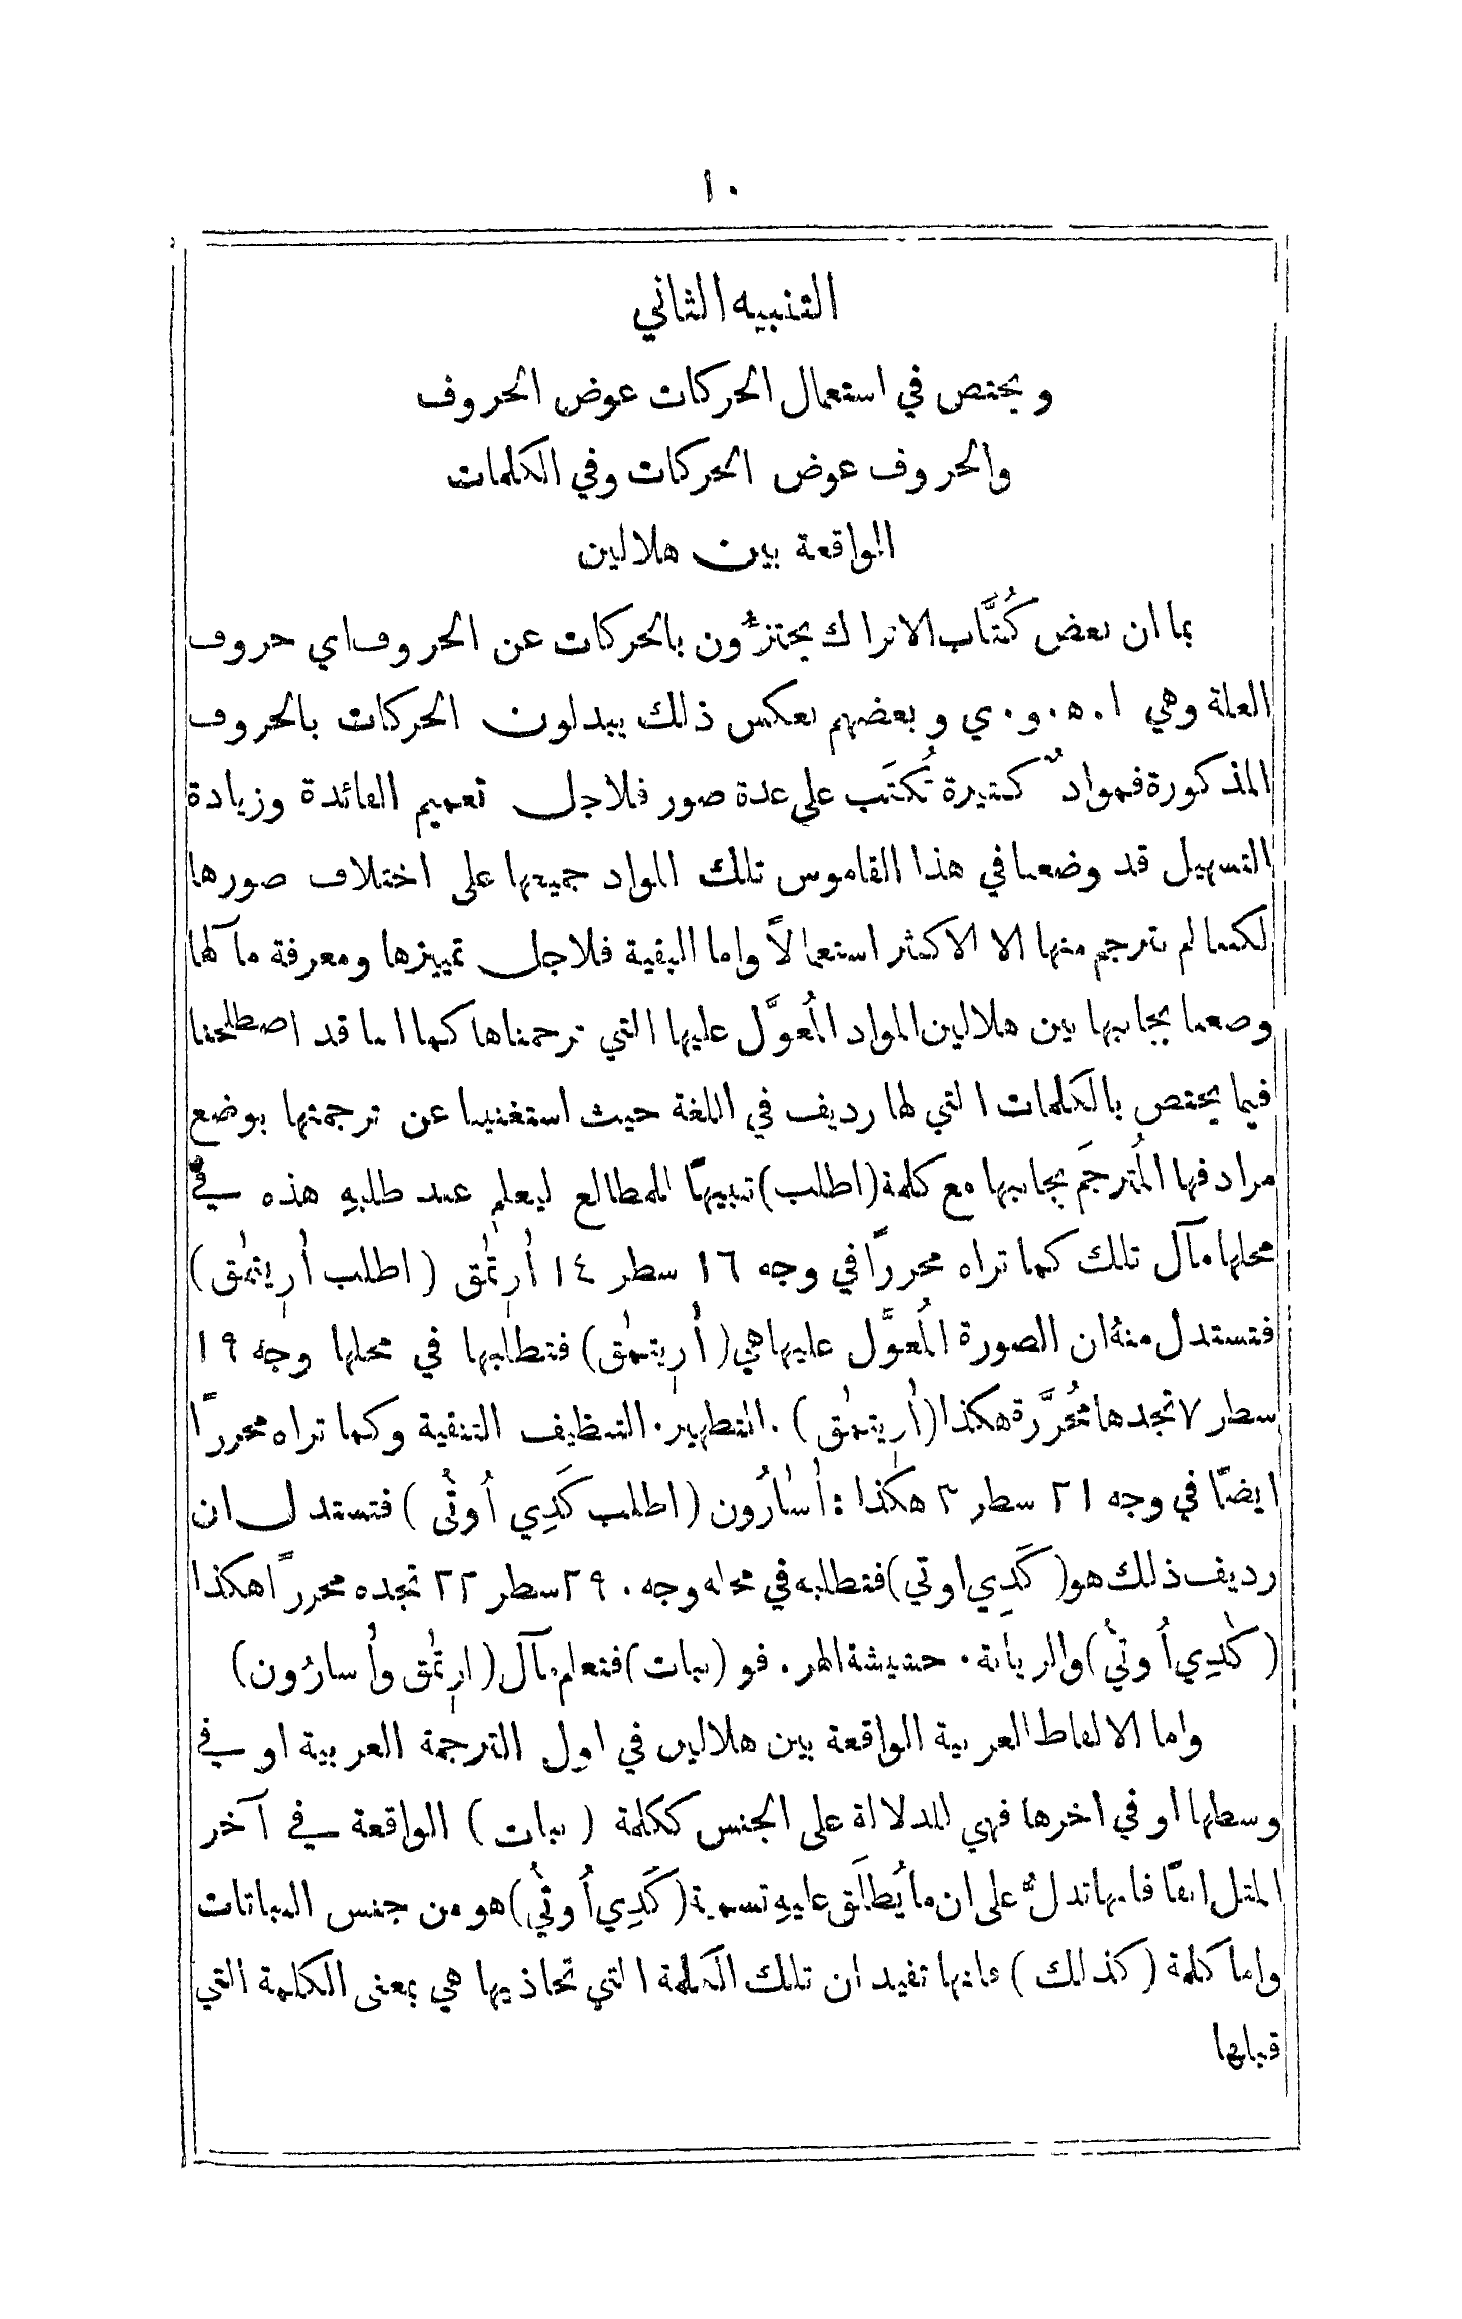 ١٠
التنبيه الثاني
ويختص في استعمال الحركات عوض الحروف
والحروف عوض الحركات وفي الكلمات
الواقعة بين هلالين
بما ان بعض كُتَّاب الاتراك يجتزئون بالحركات عن الحروف اي حروف
العلة وهي ا . ه . و . ي وبعضهم بعكس ذلك يبدلون الحركات بالحروف
المذكورة فموادٌ كثيرة تُكتَب على عدة صور فلاجل تعميم الفائدة وزيادة
التسهيل قد وضعنا في هذا القاموس تلك المواد جميعها على اختلاف صورها
لكننا لم نترجم منها الا الاكثر استعمالاً واما البقية فلاجل تمييزها ومعرفة مآلها
وضعنا بجانبها بين هلالين المواد المُعوَّل عليها التي ترجمناها كما اننا قد اصطلحنا
فيما يختص بالكلمات التي لها رديف في اللغة حيث استغنينا عن ترجمتها بوضع
مرادفها المُترجَم بجانبها مع كلمة (اطلب) تنبيهًا للمطالع ليعلم عند طلبهِ هذه في
محلها مآل تلك كما تراه محررًا في وجه ١٦ سطر ١٤ أرِتمٰق (اطلب أرِيتمٰق)
فتستدل منهُ ان الصورة المُعوَّل عليها هي (أرِيتمٰق) فتطلبها في محلها وجه ١٩
سطر ٧ تجدها مُحُرَّرة هكذا (أرِيتمٰق) . التطهير . التنظيف التنقية وكما تراه محررًا
ايضًا في وجه ٢١ سطر ٣ هكذا : أسٰارُون (اطلب كَدِي أُوتٰي) فتستدل ان
رديف ذلك هو (كَدِي اوتي) فتطلبه في محله وجه . ٢٩ سطر ٢٢ تجده محررًا هكذا
(كٰدِي أُوتٰي) والريانة . حشيشة الهر . فو (نبات) فتعلم مآل (ارِتمٰق وأسارُون)
واما الالفاظ العربية الواقعة بين هلالين في اول الترجمة العربية او في
وسطها او في اخرها فهي للدلالة على الجنس ككلمة (نبات) الواقعة في آخر
المثل انفًا فانها تدلُّ على ان ما يُطلَق عليهِ تسمية (كَدِي أُوتٰي) هو من جنس النباتات
واما كلمة (كذلك) فانها تفيد ان تلك الكلمة التي تحاذيها هي بمعنى الكلمة التي
قبلها